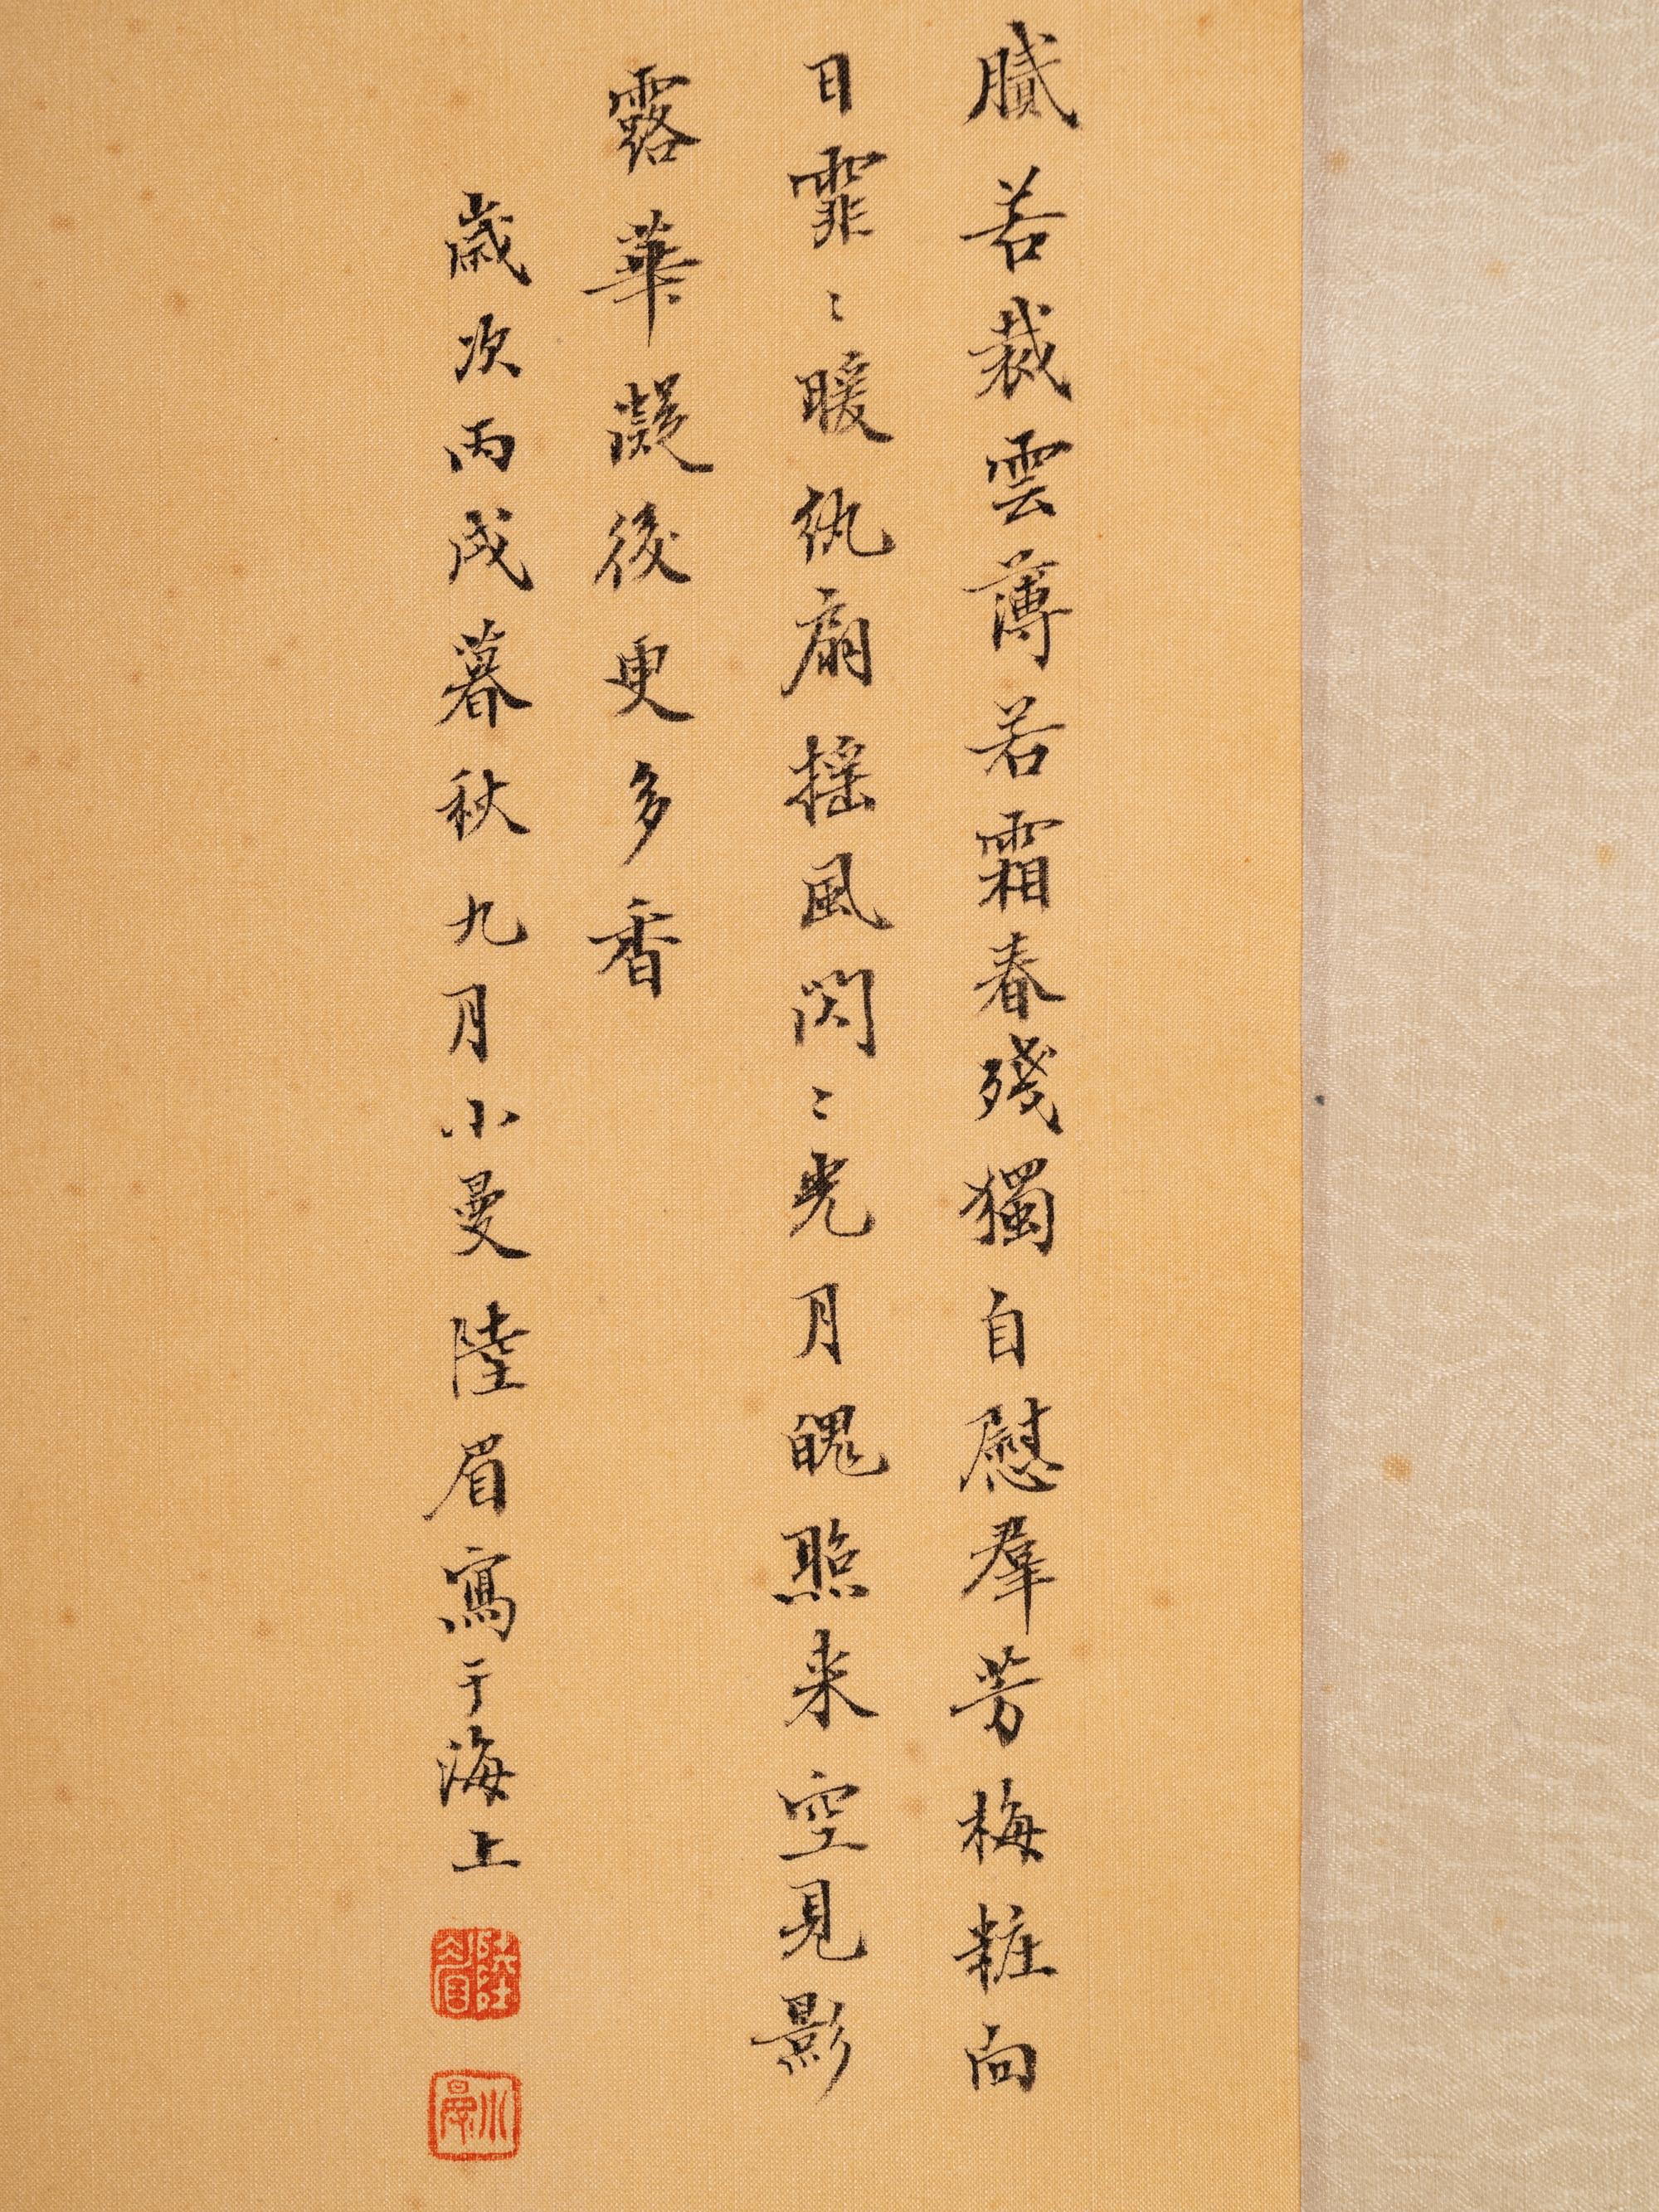 膩若裁雲薄若霜春殘獨自慰羣芳梅粧向
日霏〻暖紈扇揺風閃〻光月魄照来空見影
露華凝後更多香
歲次丙戌暮秋九月小曼陸眉寫于海上
陸眉
小曼